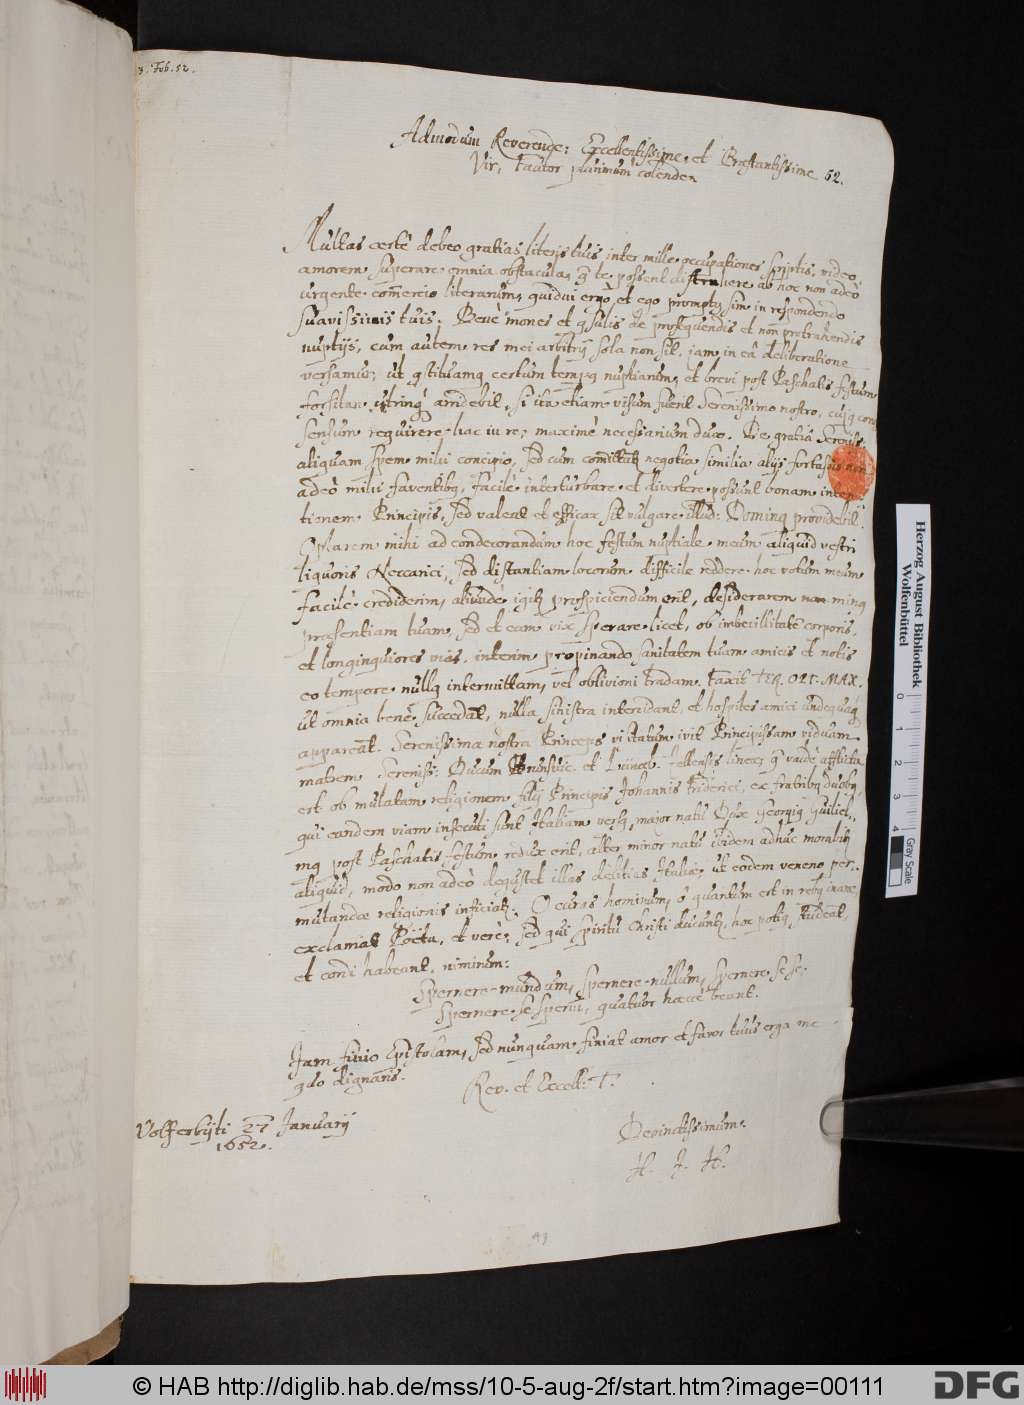 3. Feb. 52.
Admodum Reverende, Excellentissime, et Præstantissime 52.
Vir, Fautor plurimum colende.
Multas certè debeo gratias literis tuis inter mille occupationes scriptis, video
amorem superare omnia obstacula, q̃ te possent distrahere ab hoc non adeò
urgente commercio literarum, quidni ergò et ego promptq sim in respondendo
suavissimis tuis: Benè mones et qsulis de prosequendis et non protrahendis
nuptijs, cum autem res mei arbitrij sola non sit, jam in eâ deliberatione
versamur, ut qstituamq certum tempq nuptiarum, et brevi post Paschatis festum
forsitan utrinq́ amdebit, si ita etiam visum fuerit Serenissimo nostro, cujq con
sensum requirere hac in re, maximè necessarium duxo. De gratiâ Sereniss:
aliquam spem mihi concipio, sed cum committũ negotia similia alijs fortassis non
adeò mihi faventibq, facilè interturbare et divertere possunt bonam inten
tionem Principis, sed valeat et efficax sit vulgare illud: Dominq providebit.
Optarem mihi ad condecorandum hoc festum nuptiale meum aliquid vestri
liquoris Neccarici, sed distantiam locorum difficile reddere hoc votum meum
facilè crediderim, aliundè igitũ prospiciendum erit, desiderarem non minq
præsentiam tuam, sed et eam vix sperare licet, ob imbecillitatē corporis,
et longinquiores vias, interim propinando sanitatem tuam amicis et notis
eo tempore nullq intermittam, vel oblivioni tradam. Faxit TER. OPT. MAX.
ut omnia benè succedant, nulla sinistra intercidant, et hospites amici undequaq́
appareant. Serenissima nostra Princeps visitatum ivit Principissam viduam
matrem Sereniss: Ducum Brunsvic. et Luneb. Cellensis lineæ, q̃ valdè afflicta
est ob mutatam religionem filij Principis Johannis Friderici, ex fratribq duobq,
qui eandem viam insecuti sunt Italiam versq, major natu Dux Georgiq Guiliel-
mq post Paschatis festum redux erit, alter minor natu ibidem adhuc morabitũ
aliquid, modo non adeò degustet illas delitias Italiæ, ut eodem veneno per-
mutandæ religionis inficiatũ: O curas hominum, ô quantum est in rebq inane
exclamat Poëta, et verè, sed qui Spiritu Christi ducuntũ, hoc potiq studeant,
et cordi habeant, nimirum:
Spernere mundum, spernere nullum, spernere sese,
Spernere se sperni, quatuor hæcce beant.
Jam finio Epistolam, sed nunquam finiat amor et favor tuus erga me
quo dignaris.
Rev. et Excell: T.
Volfferbyti 27 Januarij
1652.
Devinctissimum.
H. J. H.
49
Herzog August Bibliothek
Wolfenbüttel
0 1 2 3 4
Gray Scale
© HAB http://diglib.hab.de/mss/10-5-aug-2f/start.htm?image=00111
DFG